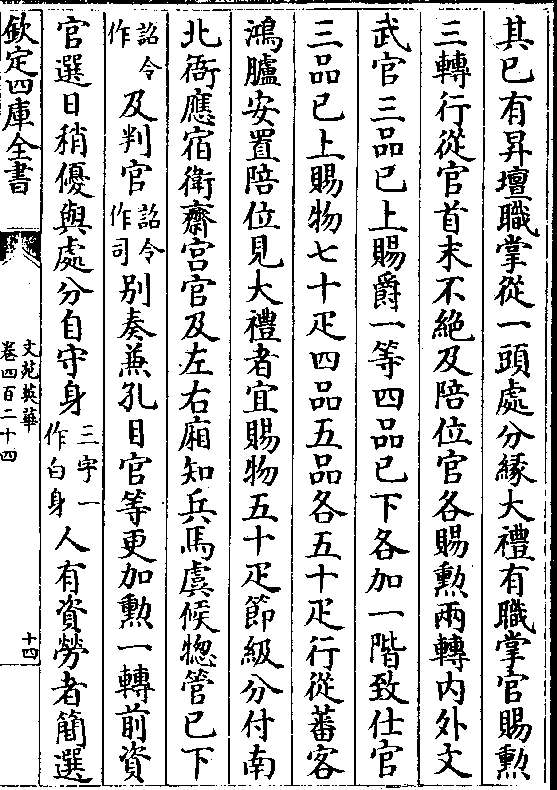 其已有昇壇職掌從一頭處分縁大禮有職掌官賜勲
三轉行從官首末不絶及陪位官各賜勲兩轉内外文
武官三品已上賜爵一等四品已下各加一階致仕官
三品已上賜物七十疋四品五品各五十疋行從蕃客
鴻臚安置陪位見大禮者宜賜物五十疋節級分付南
北衙應宿衛齋宫官及左右廂知兵馬虞候惣管已下
詔令作及判官詔令作司别奏兼孔目官等更加勲一轉前資
官選日稍優與處分自守身三字一作白身人有資勞者簡選
欽定四庫全書
文苑英華
卷四百二十四
十四